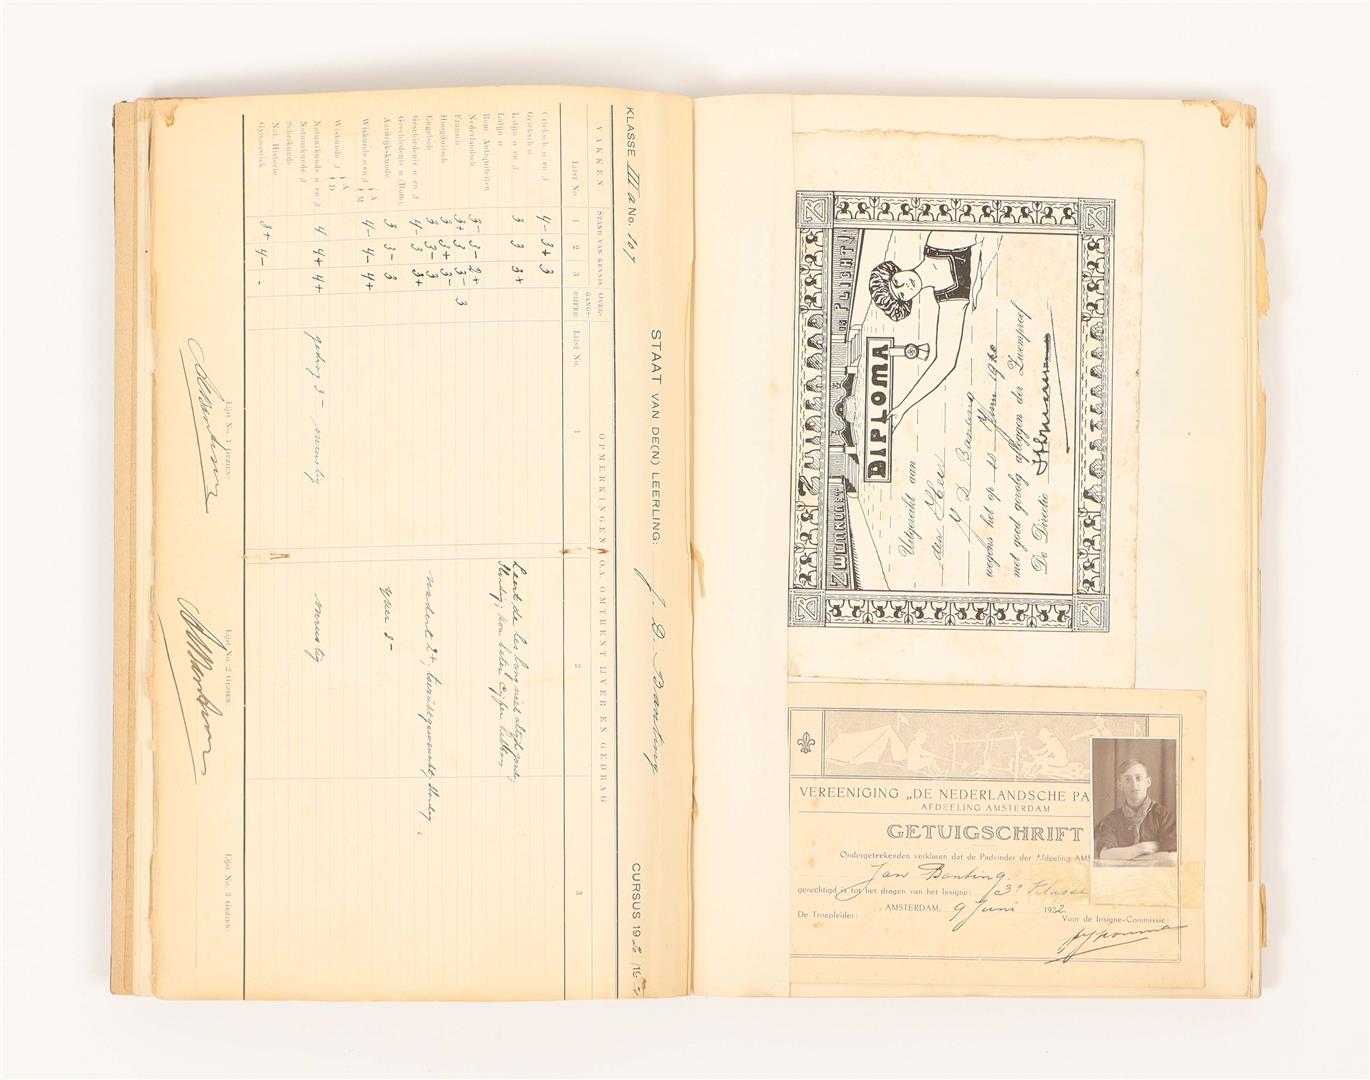 KLASSE III a No. 107
STAAT VAN DE(N) LEERLING: J. D. Banting.
CURSUS 19 20 /19
VAKKEN
STAND VAN KENNIS
OVER-
GANGS-
CIJFER
OPMERKINGEN O.A. OMTRENT IJVER EN GEDRAG
LIJST No. 1 2 3
LIJST No. 1 2 3
Grieksch α en β 4- 3+ 3
Grieksch α
Latijn α en β 3 3 3+
Latijn α
Rom. Antiquiteiten
Nederlandsch 3- 3- 2+
Fransch 3+ 3 3- 3
Hoogduitsch 3 3+ 3-
Engelsch 3 3- 3
Geschiedenis α en β 4- 3 3+
Geschiedenis α (Rom.)
Aardrijkskunde 3 3- 3
Wiskunde α en β { A M 4- 4- 4+
Wiskunde β { A D
Natuurkunde α en β 4 4+ 4+
Natuurkunde β
Scheikunde
Nat. Historie
Gymnastiek 3+ 4- -
gedrag 3- onrustig
Leert de les lang niet altijd goed,
kon beter cijfer hebben
nadert 2+,
ijver 3-
onrustig
Lijst No. 1 Gezien:
Lijst No. 2 Gezien:
Lijst No. 3 Gezien:
ZWEMKUNST IS PLICHT
DIPLOMA
Uitgereikt aan
den Heer
J D Banting
wegens het op 10 Juni 1920
met goed gevolg afleggen der Zwemproef
De Directie
VEREENIGING „DE NEDERLANDSCHE PA
AFDEELING AMSTERDAM
GETUIGSCHRIFT
Ondergeteekenden verklaren dat de Padvinder der Afdeeling AMS
Jan Banting.
gerechtigd is tot het dragen van het Insigne: 3e Klasse
AMSTERDAM, 9 Juni 1922
De Troepleider:
Voor de Insigne-Commissie: